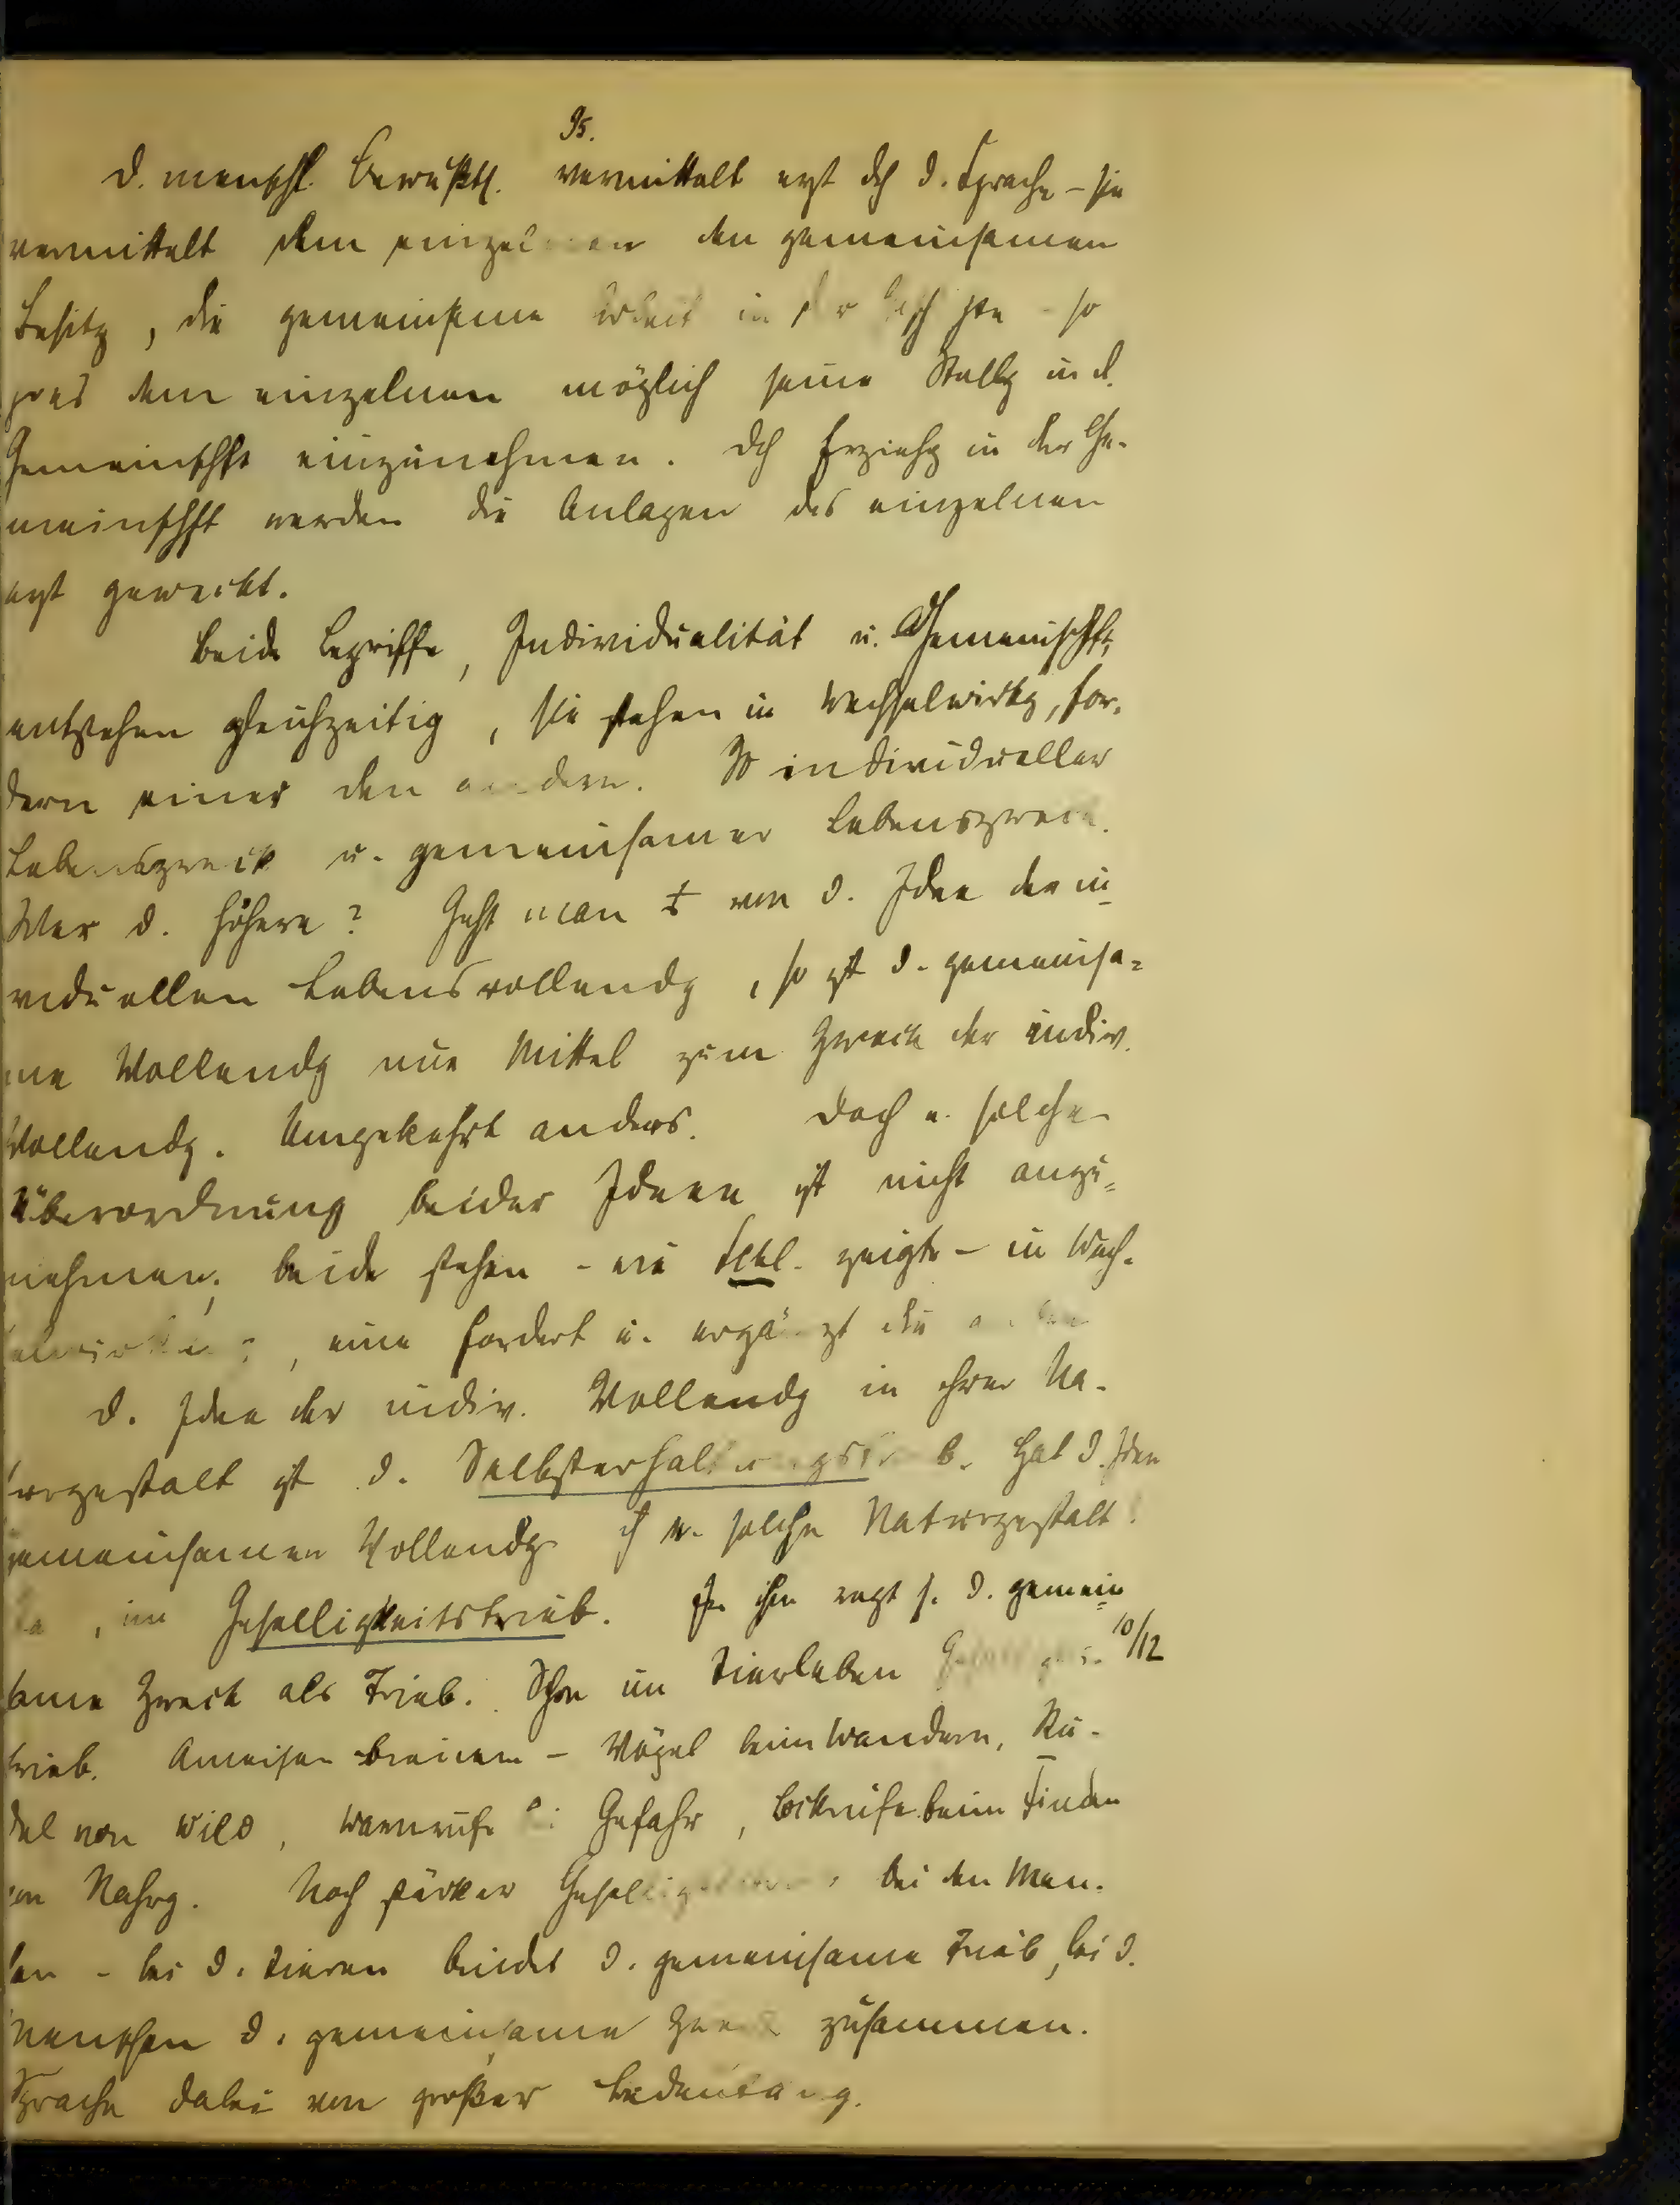 95.
D. menschl. Bewußts. vermittelt erst dch d. Sprache – sie
vermittelt dem einzelnen den gemeinsamen
Besitz, die gemeinsame Arbeit in der – so
dem einzelnen möglich seine Stellg in d.
Gemeinschft einzunehmen. Dch Erziehg in der Ge-
meinschft werden die Anlagen des einzelnen
erst geweckt.
Beide Begriffe, Individualität u. Gemeinschft,
entstehen gleichzeitig, sie stehen in Wechselwirkg, for-
dern einer den andern. So individueller
Lebenszweck u. gemeinsamer Lebenszweck.
Wer d. höhere? Geht man von d. Idee der in
viduellen Lebensvollendg, so ist d. gemeinsa-
me Vollendg nur Mittel zum Zweck der indiv.
Vollendg. Umgekehrt anders. Doch e. solche
Überordnung beider Ideen ist nicht anzu-
nehmen; beide stehen – wie Schl. zeigte – in Wech-
selwirkung, eine fordert u. ergänzt die andere
D. Idee der indiv. Vollendg in ihrer Na-
turgestalt ist d. Selbsterhaltungstrieb. Hat d. Idee
gemeinsamen Vollendg e. solche Naturgestalt?
Ja, im Geselligkeitstrieb. In ihm regt s. d. gemein
same Zweck als Trieb. Schon im Tierleben 10/12
trieb. Ameisen bauen – Vögel beim Wandern, Ru-
del von Wild, Warnrufe bei Gefahr, Lockrufe beim Finden
von Nahrg. Noch stärker bei den Men-
schen – bei d. Tieren bindet d. gemeinsame Trieb, bei d.
Menschen d. gemeinsame Zweck zusammen.
Sprache dabei von großer Bedeutung.